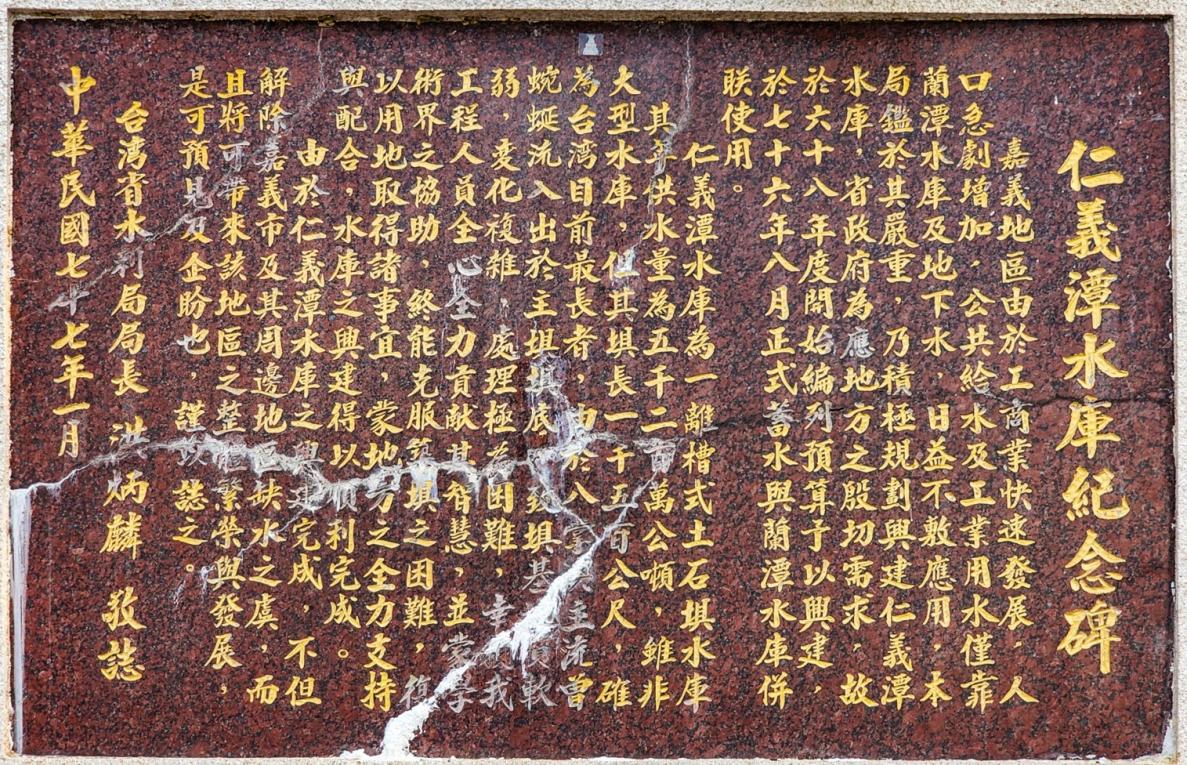 仁義潭水庫紀念碑
嘉義地區由於工商業快速發展，人
口急劇增加，公共給水及工業用水僅靠
蘭潭水庫及地下水，日益不敷應用，本
局鑑於其嚴重，乃積極規劃興建仁義潭
水庫，省政府為應地方之殷切需求，故
於六十八年度開始編列預算予以興建，
於七十六年八月正式蓄水與蘭潭水庫併
联使用。
仁義潭水庫為一離槽式土石垻水庫
其年供水量為五千二百萬公噸，雖非
大型水庫，但其垻長一千五百公尺，確
為台湾目前最長者，由於八主流曾
蜿蜒流入出於主垻垻底，致垻基軟
弱，变化複雜，處理極為困難，幸我
工程人員全心全力貢献其智慧，並蒙學
術界之協助，終能克服築垻之困難，復
以用地取得諸事宜，蒙地方之全力支持
與配合，水庫之興建得以順利完成。
由於仁義潭水庫之興建完成，不但
解除嘉義市及其周邊地區缺水之虞，而
且將可帶來該地區之整繁榮與發展，
是可預見及企盼也，謹誌之。
台湾省水利局局長 洪炳麟 敬誌
中華民國七十七年一月